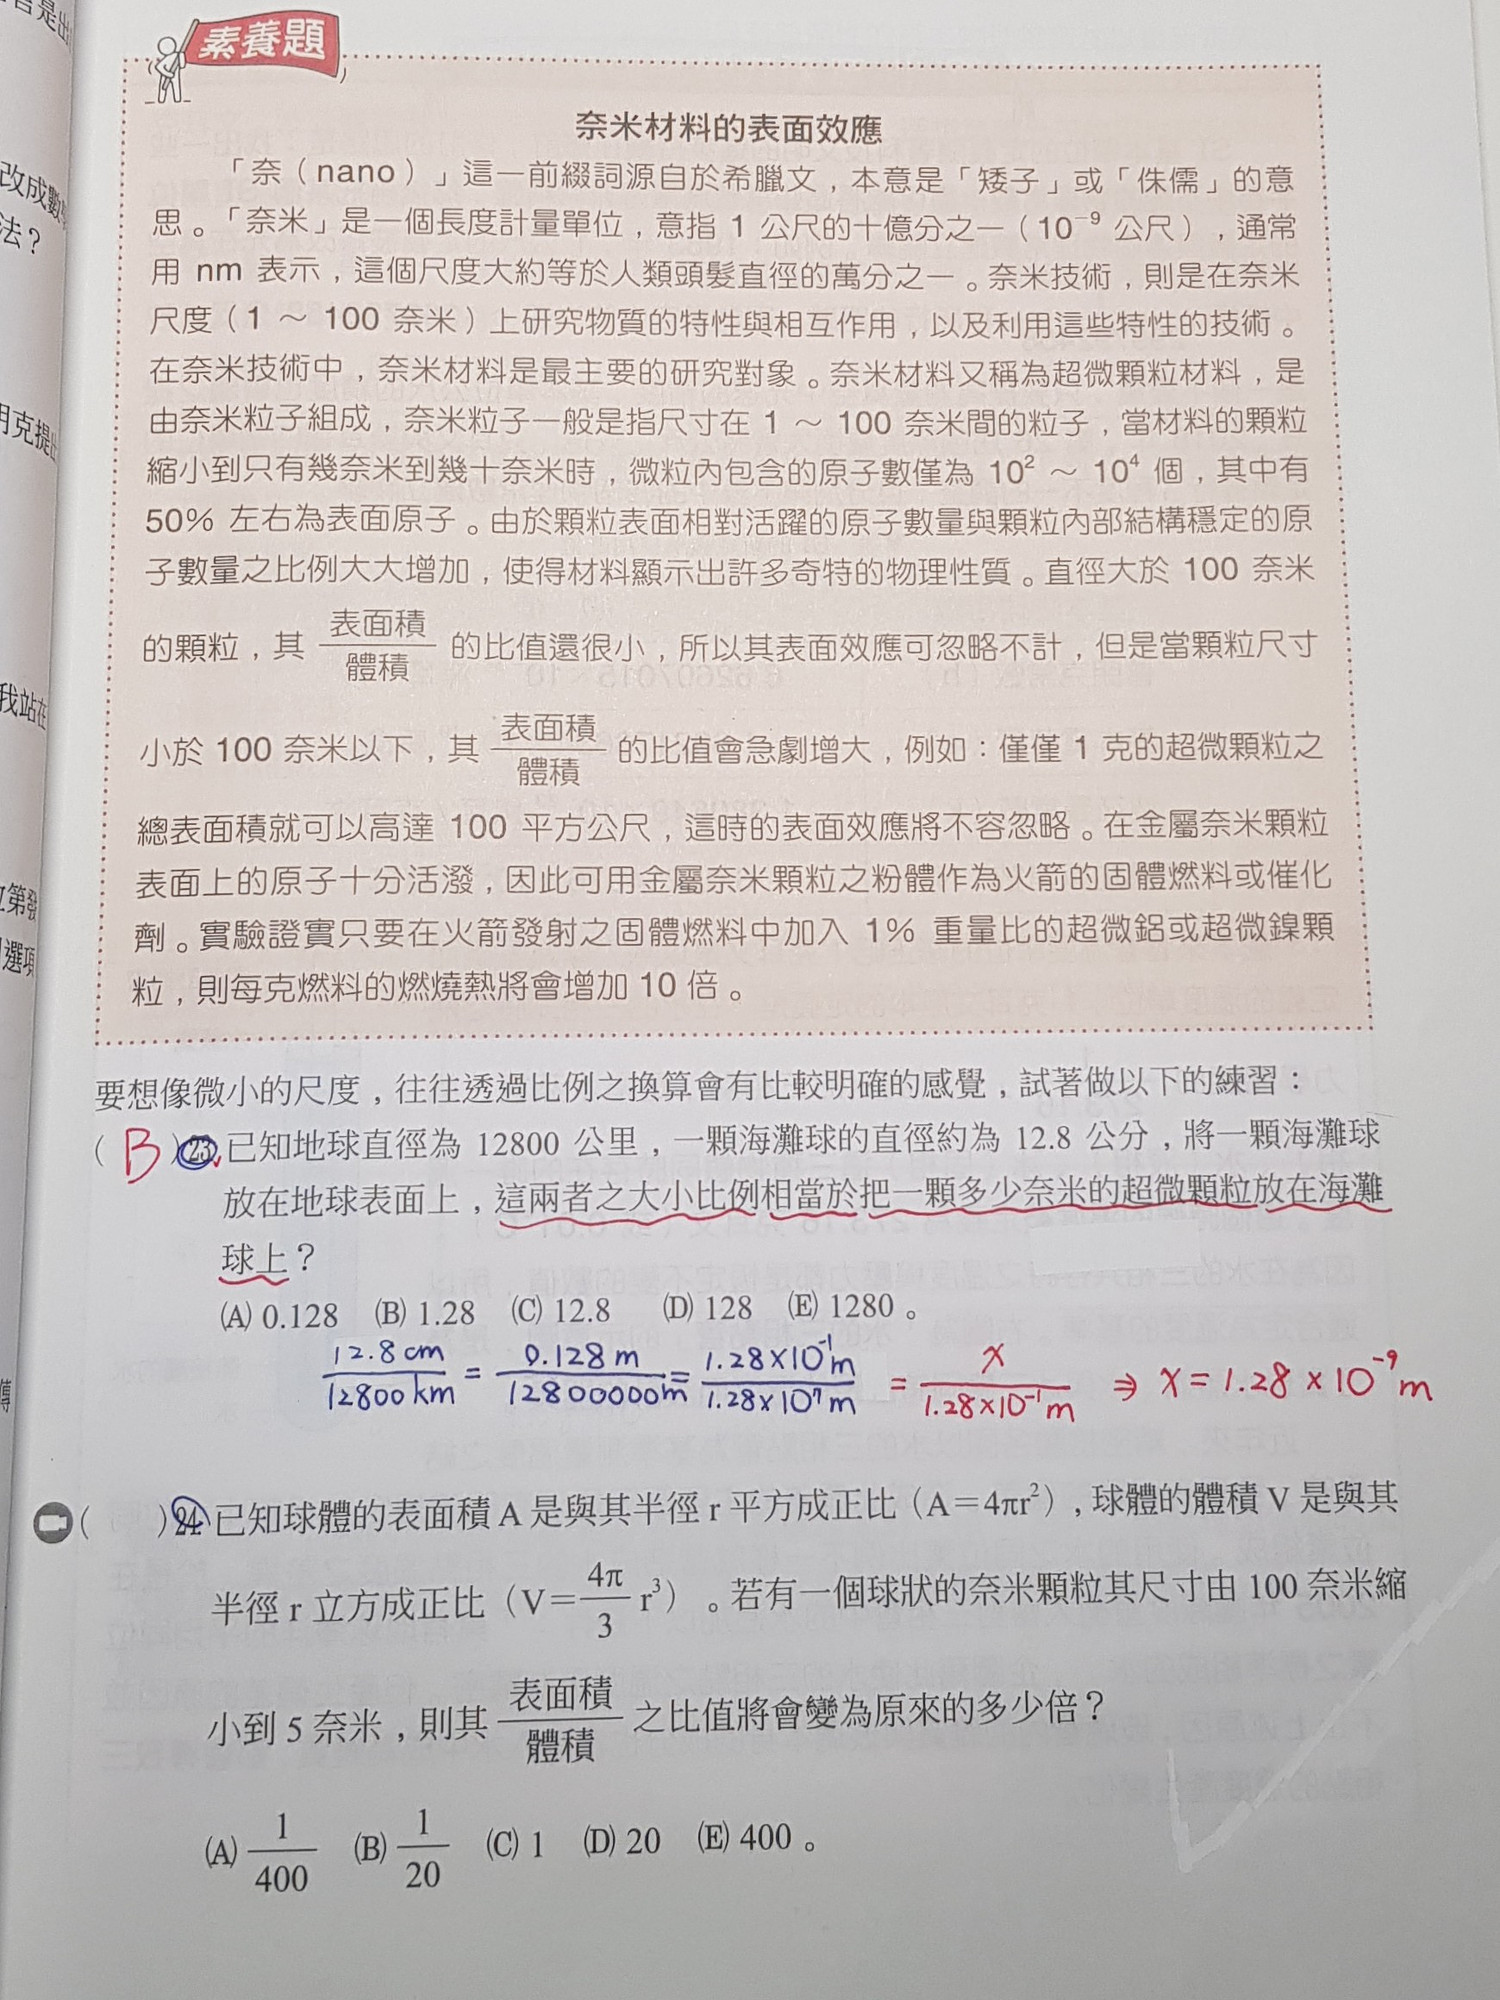 素養題
奈米材料的表面效應
「奈（nano）」這一前綴詞源自於希臘文，本意是「矮子」或「侏儒」的意
思。「奈米」是一個長度計量單位，意指 1 公尺的十億分之一（10⁻⁹ 公尺），通常
用 nm 表示，這個尺度大約等於人類頭髮直徑的萬分之一。奈米技術，則是在奈米
尺度（1 ～ 100 奈米）上研究物質的特性與相互作用，以及利用這些特性的技術。
在奈米技術中，奈米材料是最主要的研究對象。奈米材料又稱為超微顆粒材料，是
由奈米粒子組成，奈米粒子一般是指尺寸在 1 ～ 100 奈米間的粒子，當材料的顆粒
縮小到只有幾奈米到幾十奈米時，微粒內包含的原子數僅為 10² ～ 10⁴ 個，其中有
50% 左右為表面原子。由於顆粒表面相對活躍的原子數量與顆粒內部結構穩定的原
子數量之比例大大增加，使得材料顯示出許多奇特的物理性質。直徑大於 100 奈米
的顆粒，其 表面積/體積 的比值還很小，所以其表面效應可忽略不計，但是當顆粒尺寸
小於 100 奈米以下，其 表面積/體積 的比值會急劇增大，例如：僅僅 1 克的超微顆粒之
總表面積就可以高達 100 平方公尺，這時的表面效應將不容忽略。在金屬奈米顆粒
表面上的原子十分活潑，因此可用金屬奈米顆粒之粉體作為火箭的固體燃料或催化
劑。實驗證實只要在火箭發射之固體燃料中加入 1% 重量比的超微鋁或超微鎳顆
粒，則每克燃料的燃燒熱將會增加 10 倍。
要想像微小的尺度，往往透過比例之換算會有比較明確的感覺，試著做以下的練習：
( B ) 23. 已知地球直徑為 12800 公里，一顆海灘球的直徑約為 12.8 公分，將一顆海灘球
放在地球表面上，這兩者之大小比例相當於把一顆多少奈米的超微顆粒放在海灘
球上？
(A) 0.128 (B) 1.28 (C) 12.8 (D) 128 (E) 1280 。
12.8 cm/12800 km = 0.128 m/12800000 m = 1.28×10⁻¹ m/1.28×10⁷ m = x/1.28×10⁻¹ m ⇒ x = 1.28 × 10⁻⁹ m
( ) 24. 已知球體的表面積 A 是與其半徑 r 平方成正比（A＝4πr²），球體的體積 V 是與其
半徑 r 立方成正比（V＝4π/3 r³）。若有一個球狀的奈米顆粒其尺寸由 100 奈米縮
小到 5 奈米，則其 表面積/體積 之比值將會變為原來的多少倍？
(A) 1/400 (B) 1/20 (C) 1 (D) 20 (E) 400 。
改成數
法？
明克提出
我站在
選項